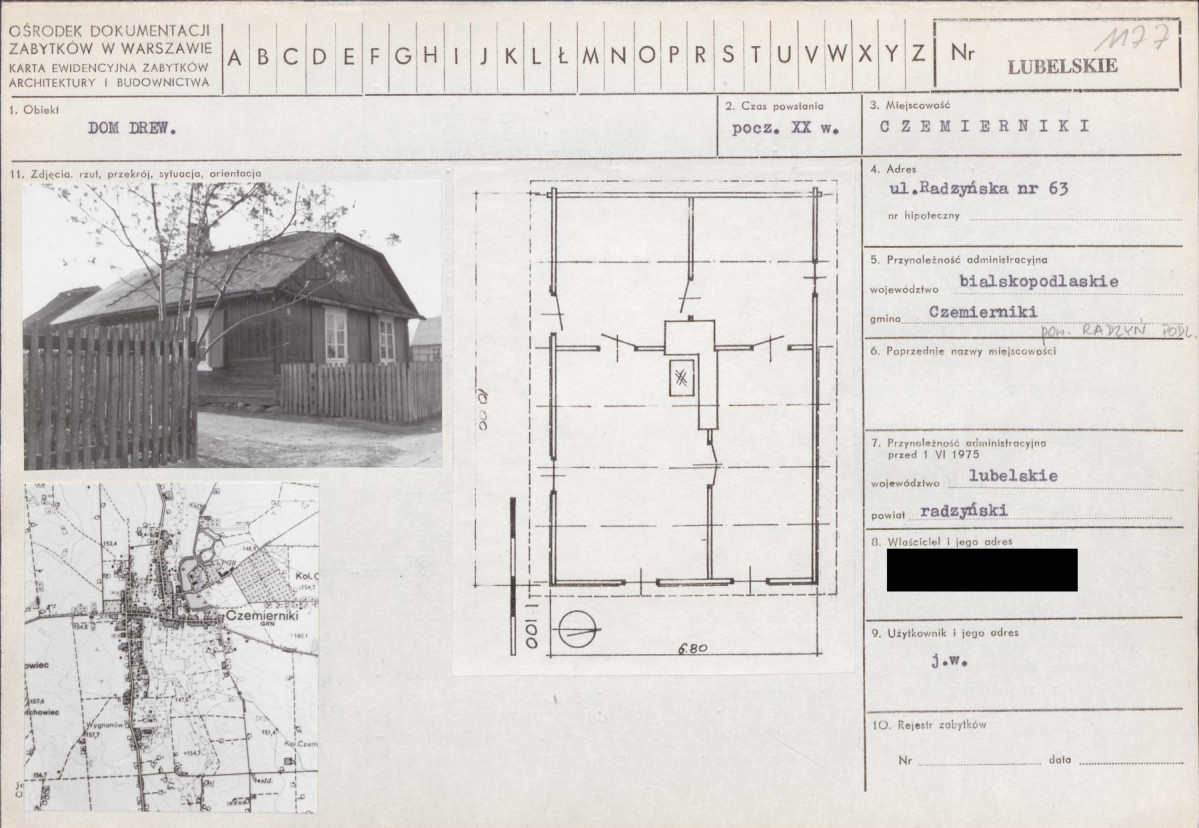 OŚRODEK DOKUMENTACJI
ZABYTKÓW W WARSZAWIE
KARTA EWIDENCYJNA ZABYTKÓW
ARCHITEKTURY I BUDOWNICTWA
A B C D E F G H I J K L Ł M N O P R S T U V W X Y Z
Nr
1177
LUBELSKIE
1. Obiekt
DOM DREW.
2. Czas powstania
pocz. XX w.
3. Miejscowość
CZEMIERNIKI
11. Zdjęcia, rzut, przekrój, sytuacja, orientacja
4. Adres
ul.Radzyńska nr 63
nr hipoteczny
5. Przynależność administracyjna
województwo bialskopodlaskie
gmina Czemierniki
pow. RADZYŃ PODL.
6. Poprzednie nazwy miejscowości
7. Przynależność administracyjna
przed 1 VI 1975
województwo lubelskie
powiat radzyński
8. Właściciel i jego adres
9. Użytkownik i jego adres
j.w.
10. Rejestr zabytków
Nr data
10.00
1:100
6.80
153,4
148,9
PGR
Kol.C
154,7
Czemierniki
GRN
154,8
160,1
owiec
157,6
chowiec
147,5
Wygnanów
151,7
151,4
Kol.Czem
154,7
156,7
std.